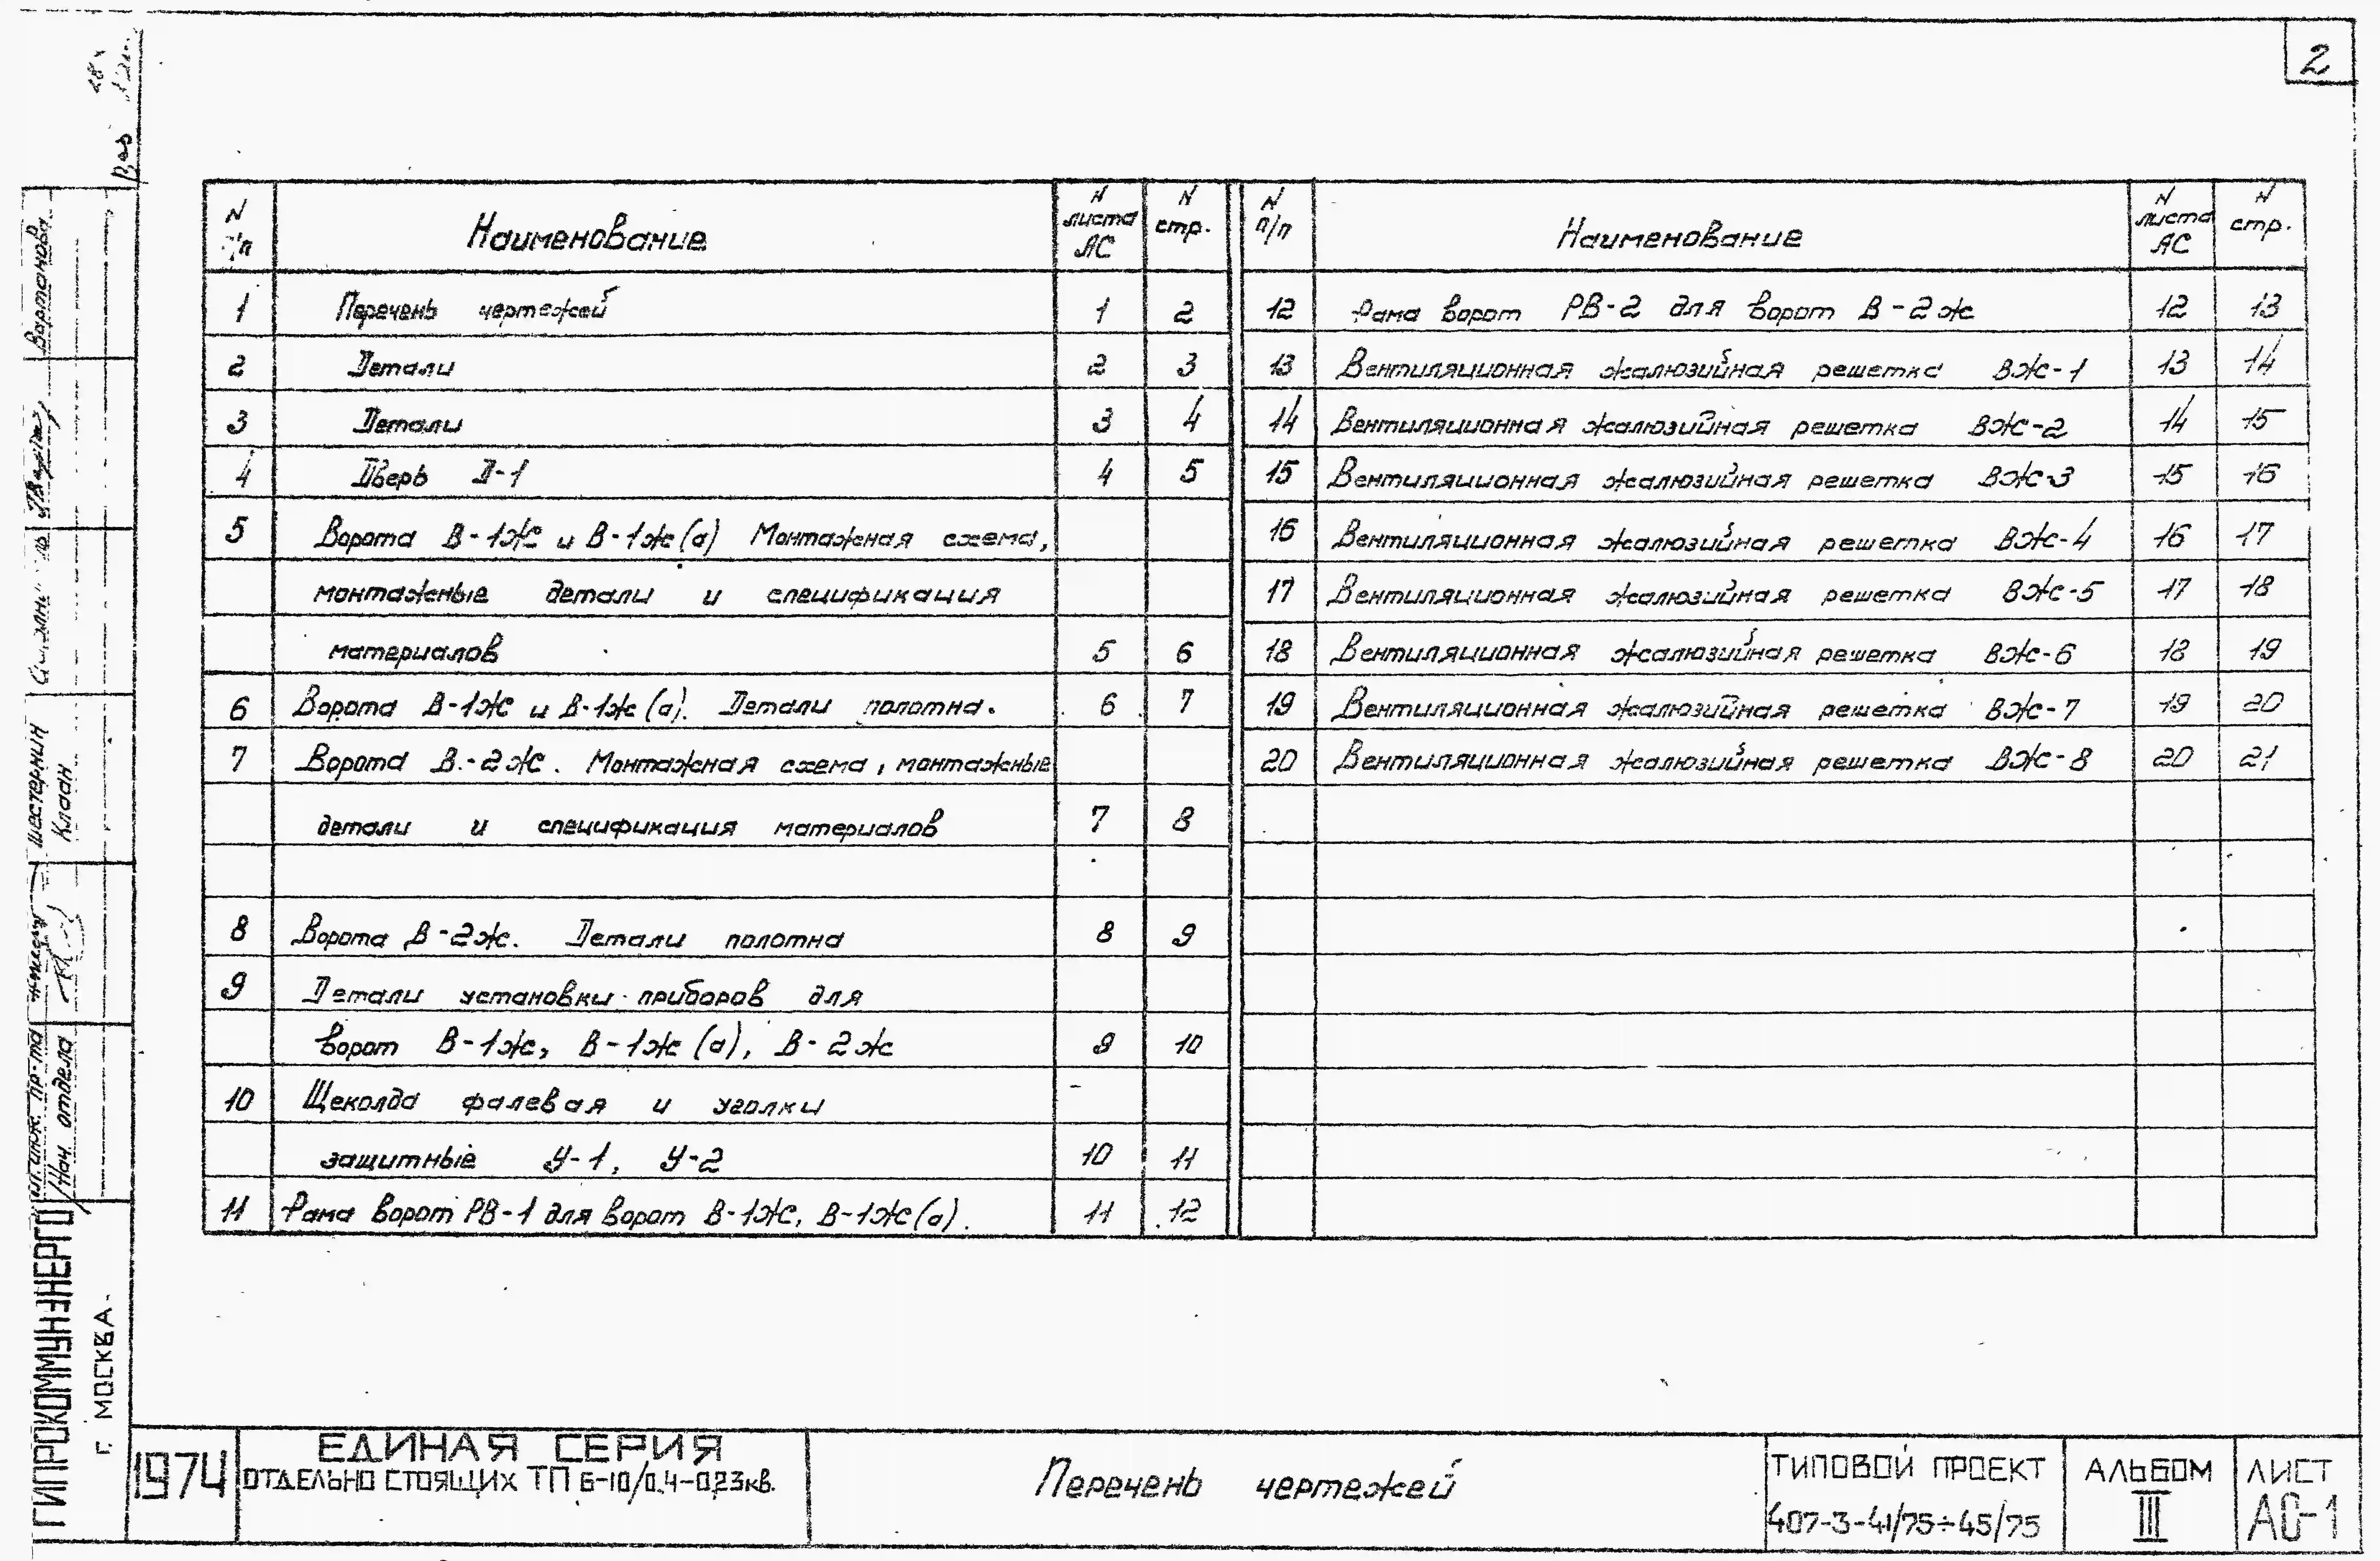 2
N п/п Наименование N листа АС N стр.
1 Перечень чертежей 1 2
2 Детали 2 3
3 Детали 3 4
4 Дверь Д-1 4 5
5 Ворота В-1Ж и В-1Ж(а) Монтажная схема,
монтажные детали и спецификация
материалов 5 6
6 Ворота В-1Ж и В-1Ж(а). Детали полотна. 6 7
7 Ворота В-2Ж. Монтажная схема, монтажные
детали и спецификация материалов 7 8
8 Ворота В-2Ж. Детали полотна 8 9
9 Детали установки приборов для
ворот В-1Ж, В-1Ж(а), В-2Ж 9 10
10 Щеколда фалевая и уголки
защитные У-1, У-2 10 11
11 Рама ворот РВ-1 для ворот В-1Ж, В-1Ж(а). 11 12
N п/п Наименование N листа АС N стр.
12 Рама ворот РВ-2 для ворот В-2Ж 12 13
13 Вентиляционная жалюзийная решетка ВЖ-1 13 14
14 Вентиляционная жалюзийная решетка ВЖ-2 14 15
15 Вентиляционная жалюзийная решетка ВЖ-3 15 16
16 Вентиляционная жалюзийная решетка ВЖ-4 16 17
17 Вентиляционная жалюзийная решетка ВЖ-5 17 18
18 Вентиляционная жалюзийная решетка ВЖ-6 18 19
19 Вентиляционная жалюзийная решетка ВЖ-7 19 20
20 Вентиляционная жалюзийная решетка ВЖ-8 20 21
ГИПРОКОММУНЭНЕРГО
г. МОСКВА
Нач. отдела
Клаан
пр-та
Шестернин
Вартанова
1974
ЕДИНАЯ СЕРИЯ
ОТДЕЛЬНО СТОЯЩИХ ТП 6-10/0,4-0,23кв.
Перечень чертежей
ТИПОВОЙ ПРОЕКТ
407-3-41/75÷45/75
АЛЬБОМ
III
ЛИСТ
АС-1